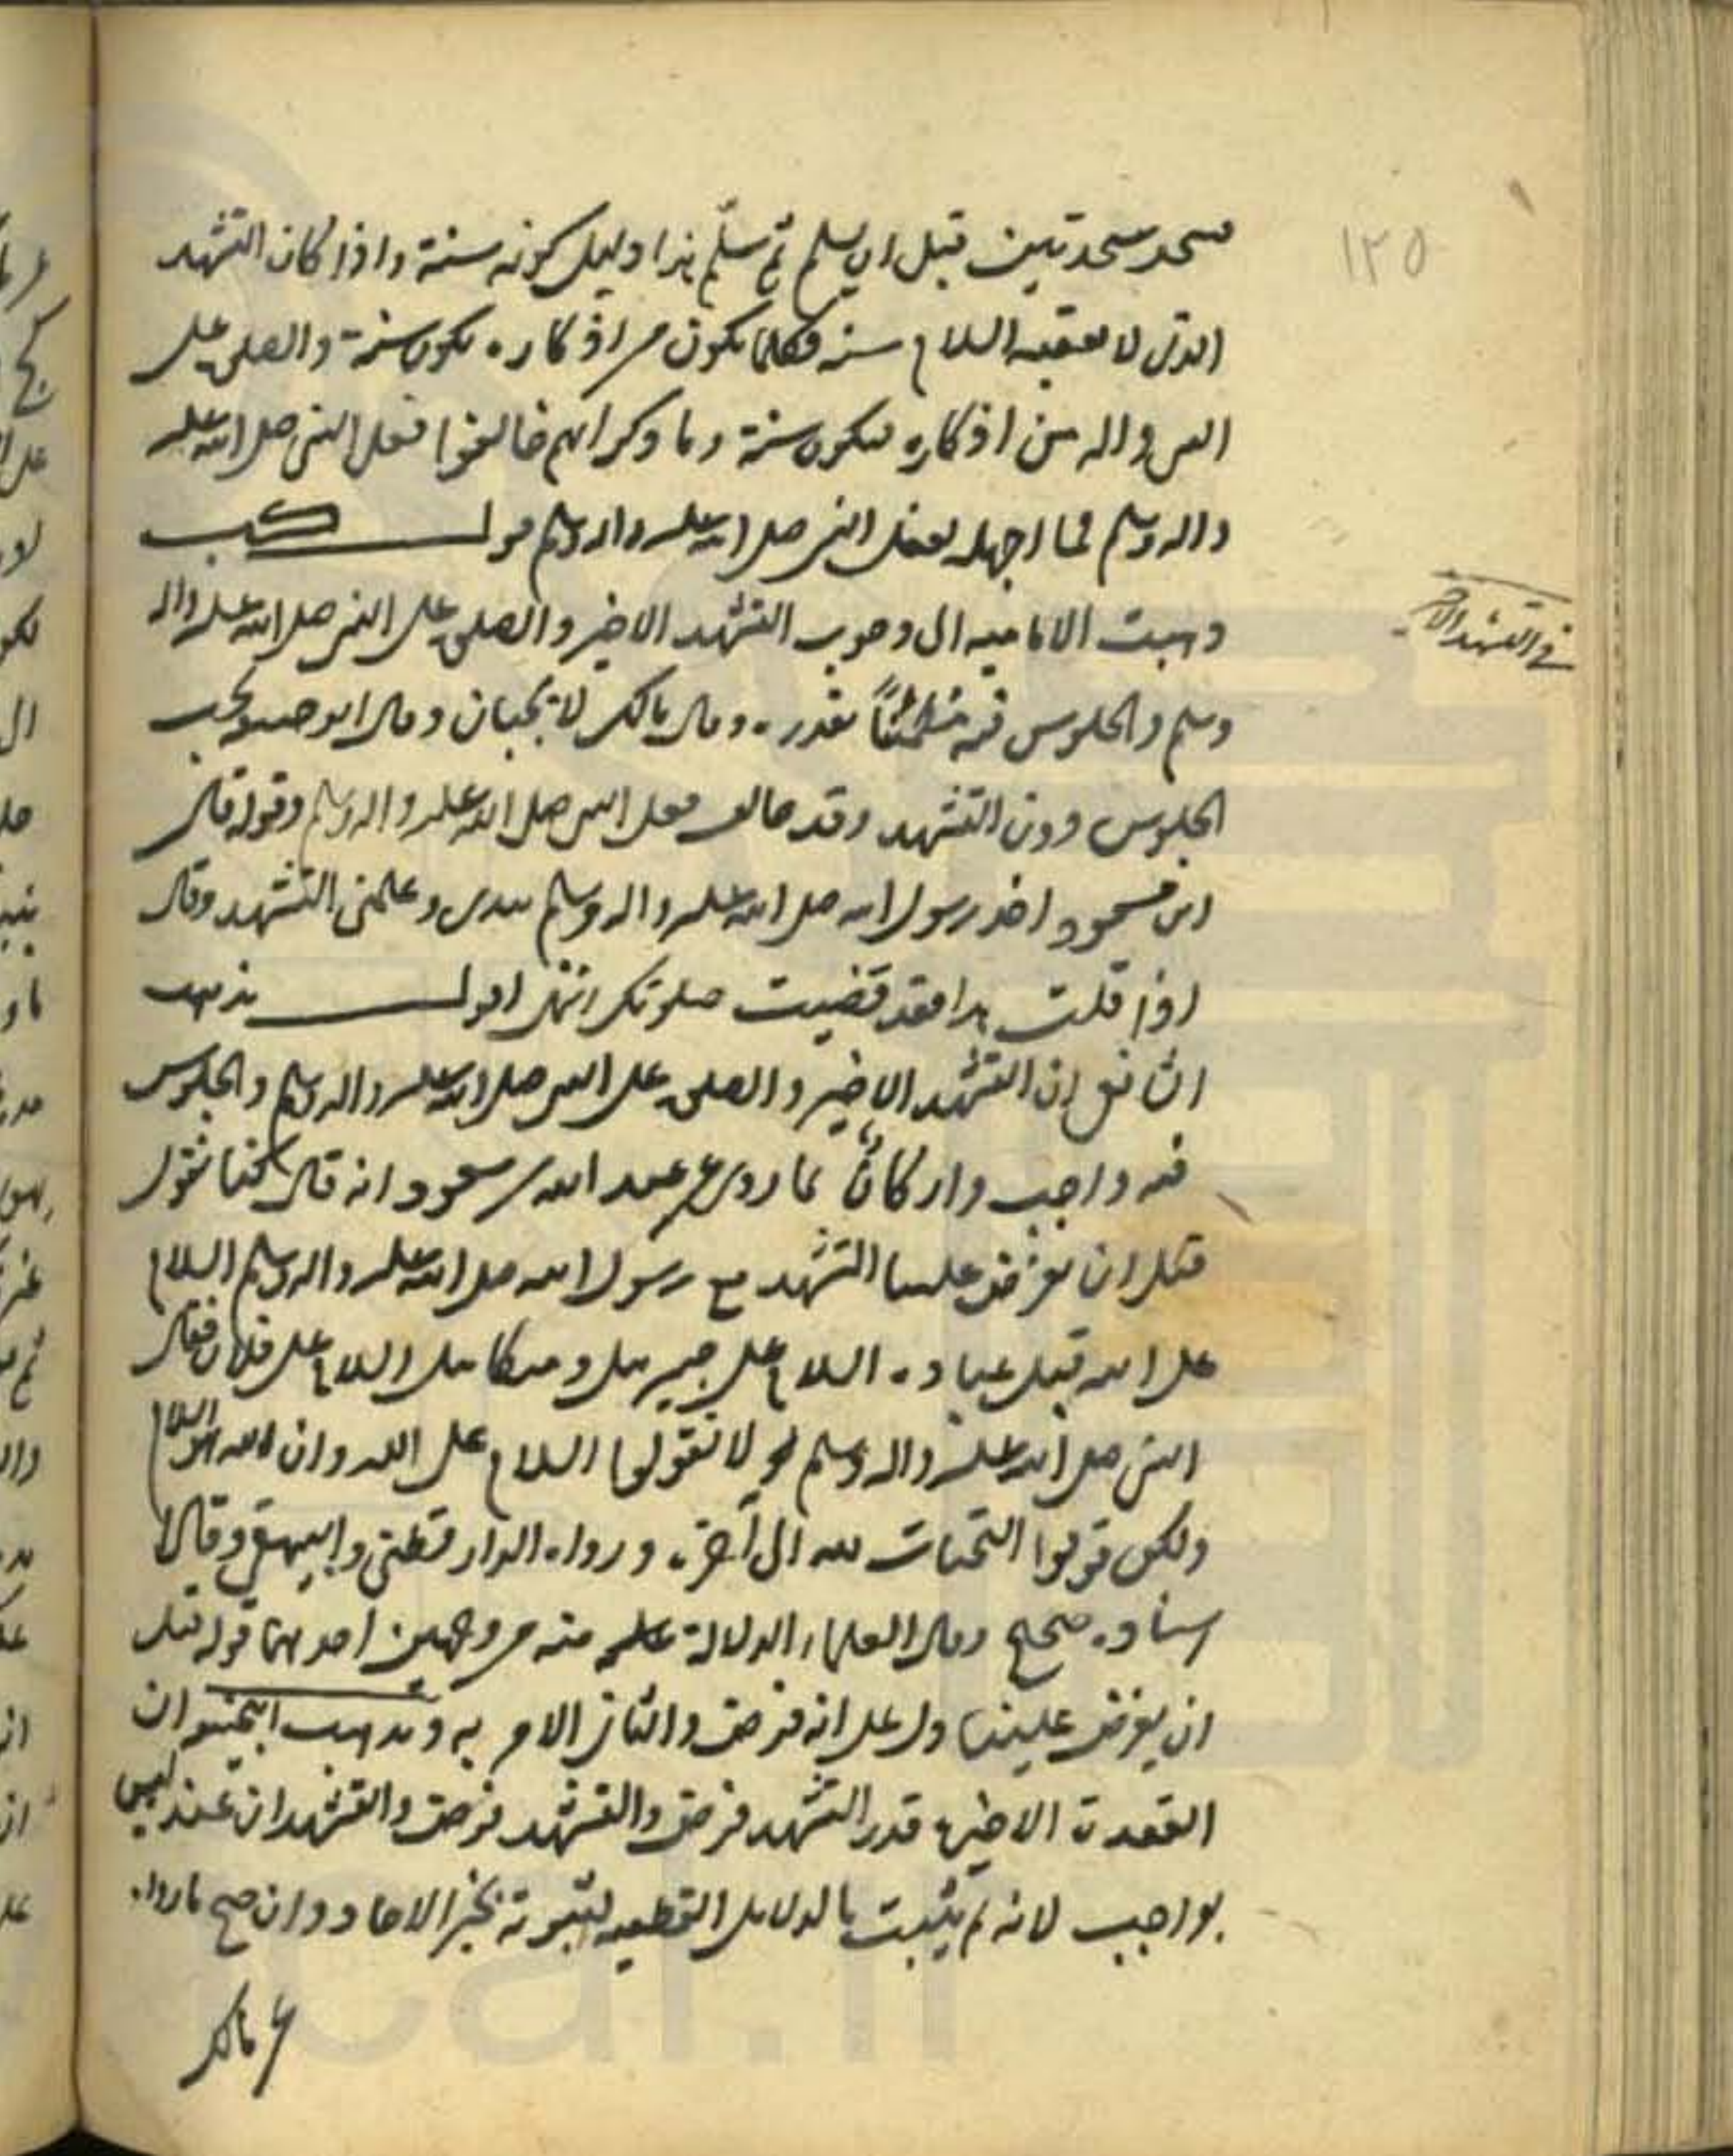 ١٢٥
فسجد سجدتين قبل ان يسلم ثم سلّم هذا دليل كونه سنة واذا كان التشهد
الذى لا يعقبه السلام سنة فكلما يكون من اذكاره يكون سنة والصلى على
النبى واله من اذكاره فيكون سنة وما ذكر انهم خالفوا فعل النبى صلى الله عليه
واله وسلم فما اجهله بفعل النبى صلى الله عليه واله وسلم قولـــ كـب
ذهبت الاماميه الى وجوب التشهد الاخير والصلى على النبى صلى الله عليه واله
فى التشهد الاخير
وسلم والجلوس فيه مطمئنًا بقدره وقال مالك لا يجبان وقال ابو حنيفه يجب
الجلوس دون التشهد وقد خالف فعل النبى صلى الله عليه واله وسلم وقوله قال
ابن مسعود اخذ رسول الله صلى الله عليه واله وسلم بيدى وعلمنى التشهد وقال
اذا قلت هذا فقد قضيت صلوتك انتهى اقولـــ مذهب
الشافعى ان التشهد الاخير والصلى على النبى صلى الله عليه واله وسلم والجلوس
فيه واجب واركانًا لما روى عن عبد الله بن مسعود انه قال كنا نقول
قبل ان يفرض علينا التشهد مع رسول الله صلى الله عليه واله وسلم السلام
على الله قبل عباده السلام على جبرييل وميكاييل السلام على فلان فقال
النبى صلى الله عليه واله وسلم لا تقولوا السلام على الله وان الله هو السلام
ولكن قولوا التحيات لله الى آخره ورواه الدارقطنى والبيهقى وقالا
اسناده صحيح وقال العلماء الدلالة عليه منه من وجهين احدهما قوله قبل
ان يفرض علينا دل على انه فرض والثانى الامر به ومذهب ابيحنيفه ان
القعدة الاخيره قدر التشهد فرض والتشهد فرض والتشهدان عنده ليس
بواجب لانه لم يثبت بالدلايل القطعيه لثبوته بخبر الاحاد وان صح مارواه
مالك